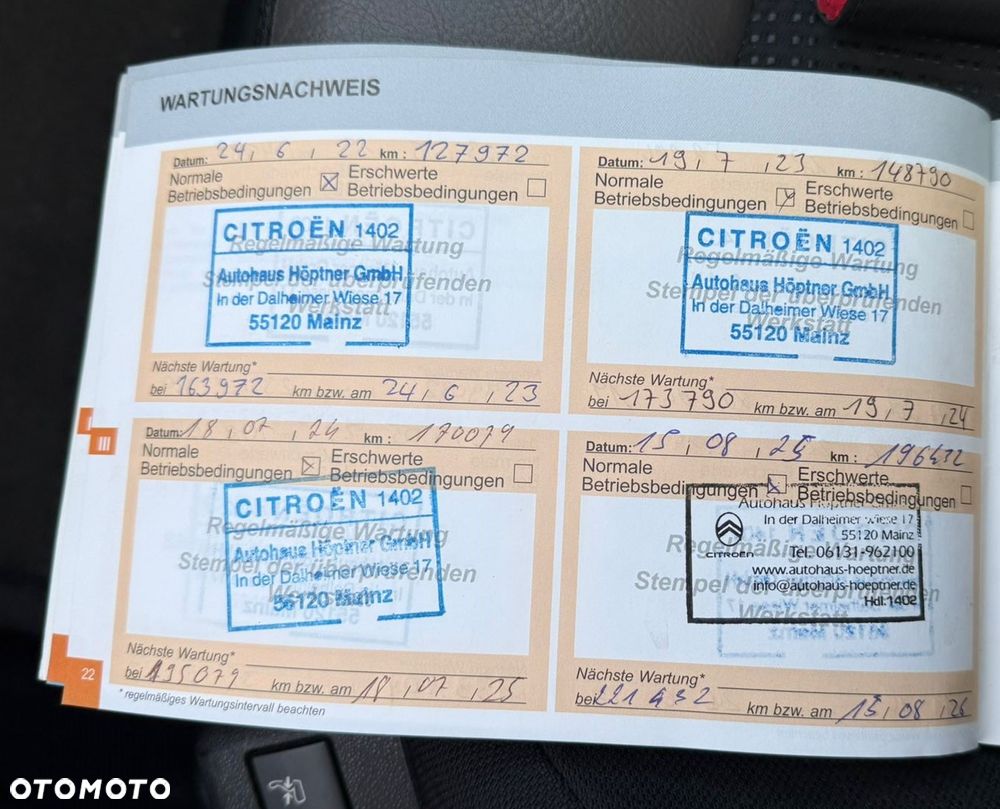 WARTUNGSNACHWEIS
Datum: 24, 6, 22 km: 127972
Normale Betriebsbedingungen ☒ Erschwerte Betriebsbedingungen ☐
CITROËN 1402
Regelmäßige Wartung
Autohaus Höptner GmbH
Stempel der überprüfenden
In der Dalheimer Wiese 17
Werkstatt
55120 Mainz
Nächste Wartung*
bei 163972 km bzw. am 24, 6, 23
Datum: 19, 7, 23 km: 148790
Normale Betriebsbedingungen ☒ Erschwerte Betriebsbedingungen ☐
CITROËN 1402
Regelmäßige Wartung
Autohaus Höptner GmbH
Stempel der überprüfenden
In der Dalheimer Wiese 17
Werkstatt
55120 Mainz
Nächste Wartung*
bei 173790 km bzw. am 19, 7, 24
III
Datum: 18, 07, 24 km: 170079
Normale Betriebsbedingungen ☒ Erschwerte Betriebsbedingungen ☐
CITROËN 1402
Regelmäßige Wartung
Autohaus Höptner GmbH
Stempel der überprüfenden
In der Dalheimer Wiese 17
Werkstatt
55120 Mainz
Nächste Wartung*
bei 195079 km bzw. am 18, 07, 25
Datum: 15, 08, 25 km:
Normale Betriebsbedingungen ☒ Erschwerte Betriebsbedingungen ☐
Autohaus Höptner GmbH
In der Dalheimer Wiese 17
55120 Mainz
CITROËN
Regelmäßige Wartung
Tel. 06131-962100
www.autohaus-hoeptner.de
Stempel der überprüfenden
info@autohaus-hoeptner.de
Hdl.1402
Werkstatt
Nächste Wartung*
bei km bzw. am 15, 08, 26
22
* regelmäßiges Wartungsintervall beachten
OTOMOTO